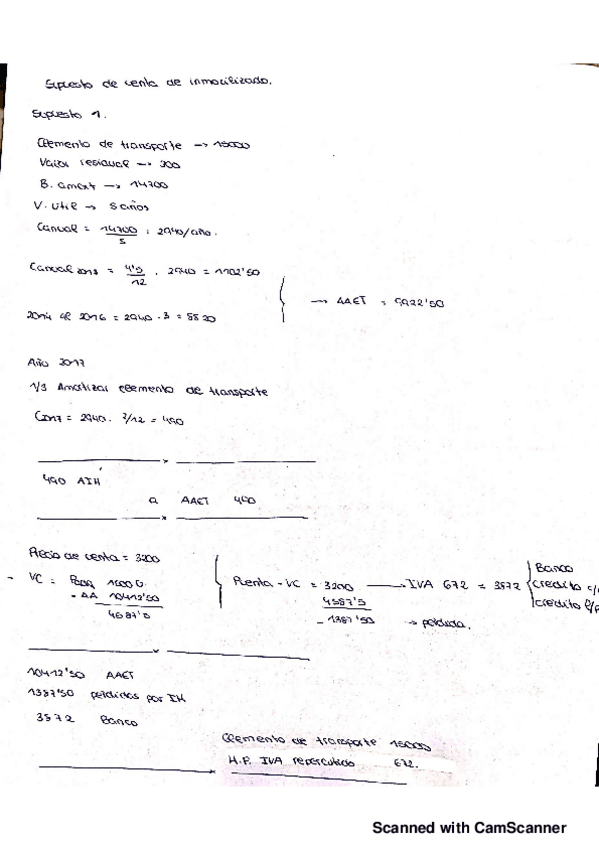 Supuesto de venta de inmovilizado.
Supuesto 1.
Elemento de transporte → 15000
Valor residual → 300
B. amort → 14700
V. Util → 5 años
Canual = 14700/5 = 2940/año.
Canual 2013 = 4'5/12 . 2940 = 1102'50
→ AAET = 9922'50
2014 al 2016 = 2940 . 3 = 8820
Año 2017
1/3 Amortizar elemento de transporte
C2017 = 2940 . 2/12 = 490
490 AIM
a AAET 490
Precio de venta = 3200
- VC = 15000
- AA 10412'50
4587'5
Pventa - VC = 3200
4587'5
- 1387'50 → perdida.
IVA 672 = 3872
Banco
Credito c/
Credito l/p
10412'50 AAET
1387'50 perdidas por IM
3872 Banco
Elemento de transporte 15000
H.P. IVA repercutido 672.
Scanned with CamScanner